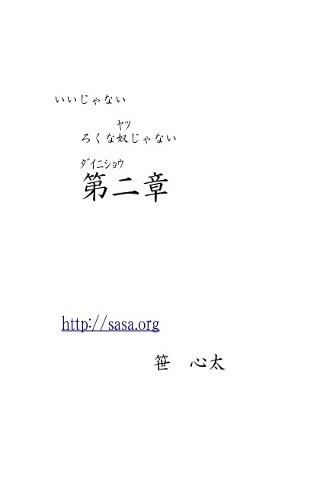 いいじゃない
ﾔﾂ
ろくな奴じゃない
ﾀﾞｲﾆｼｮｳ
第二章
http://sasa.org
笹　心太